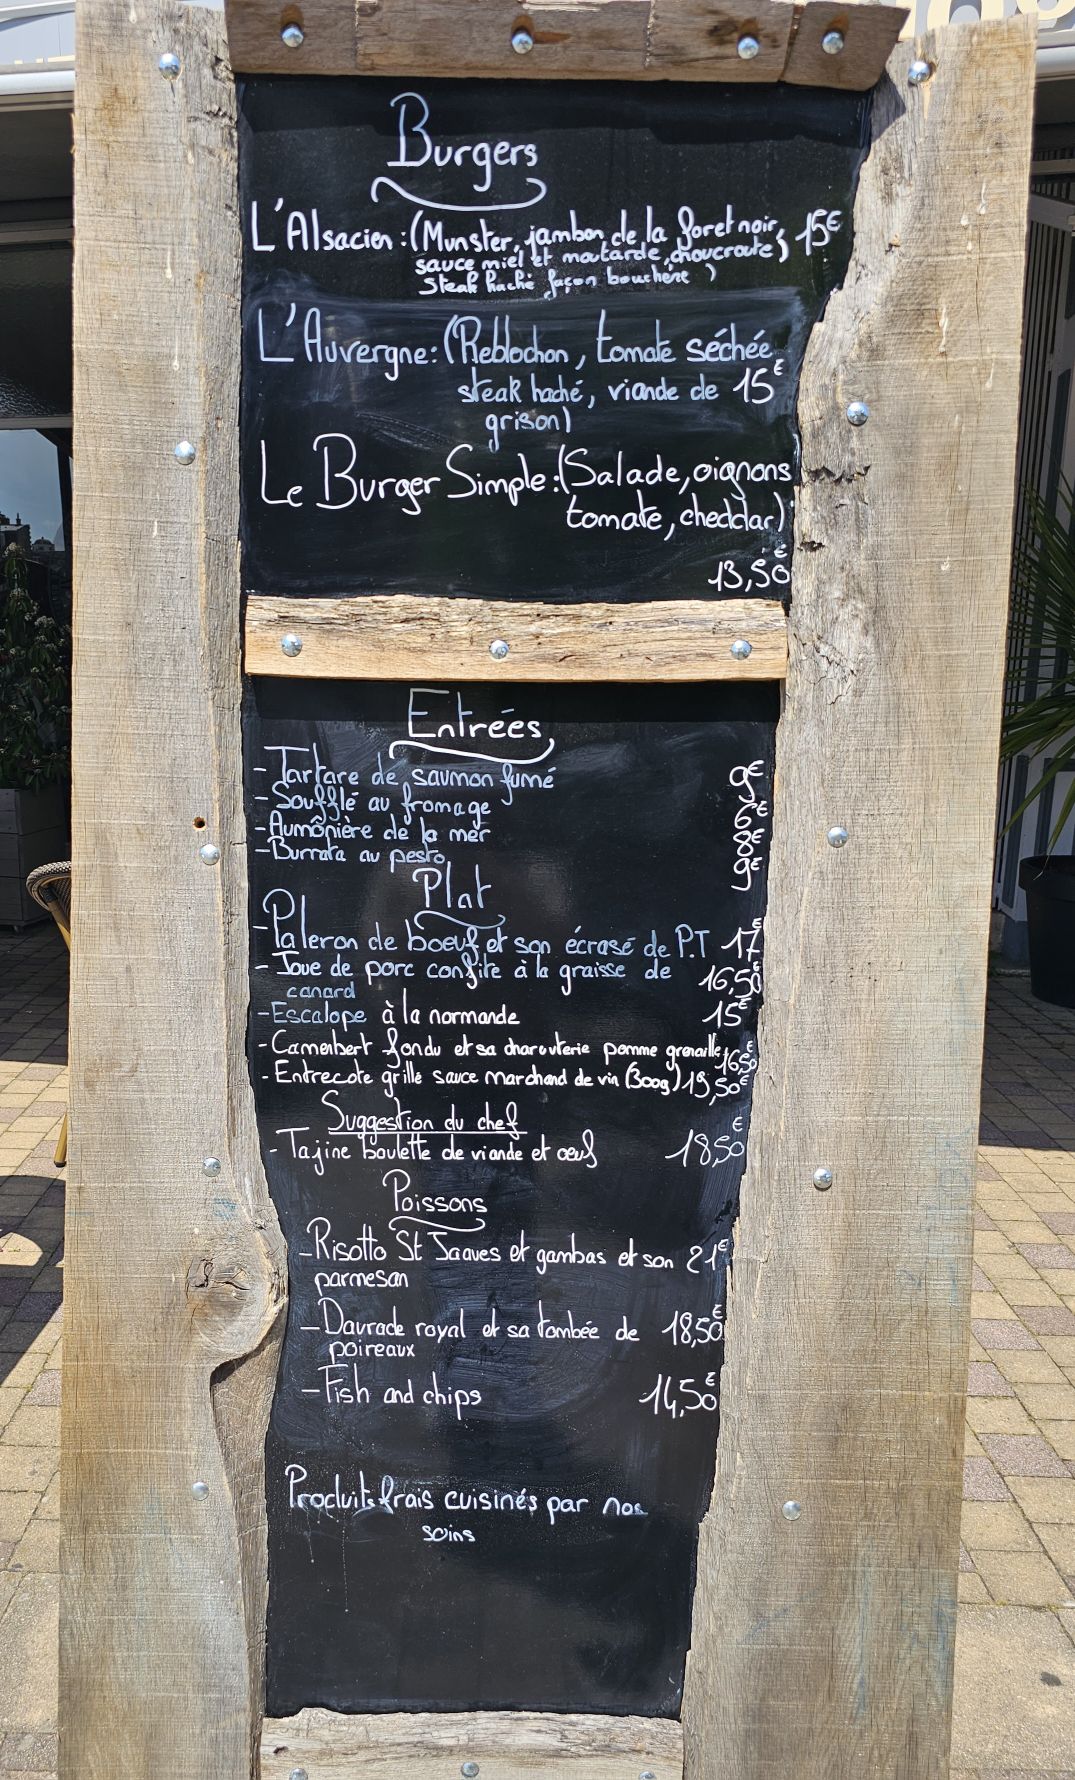 Burgers
L'Alsacien : (Munster, jambon de la foret noir, 15€
sauce miel et moutarde, choucroute,
Steak haché façon bouchère )
L'Auvergne : (Reblochon, tomate séchée,
steak haché, viande de 15€
grison)
Le Burger Simple : (Salade, oignons
tomate, cheddar)
13,50€
Entrées
- Tartare de saumon fumé 9€
- Soufflé au fromage 6€
- Aumônière de la mer 8€
- Burrata au pesto 9€
Plat
- Paleron de boeuf et son écrasé de P.T 17€
- Joue de porc confite à la graisse de 16,50€
canard
- Escalope à la normande 15€
- Camembert fondu et sa charcuterie pomme grenaille 16,50€
- Entrecote grillé sauce marchand de vin (300g) 19,50€
Suggestion du chef
- Tajine boulette de viande et œuf 18,50€
Poissons
- Risotto St Jaques et gambas et son 21€
parmesan
- Daurade royal et sa tombée de 18,50€
poireaux
- Fish and chips 14,50€
Produits frais cuisinés par nos
soins